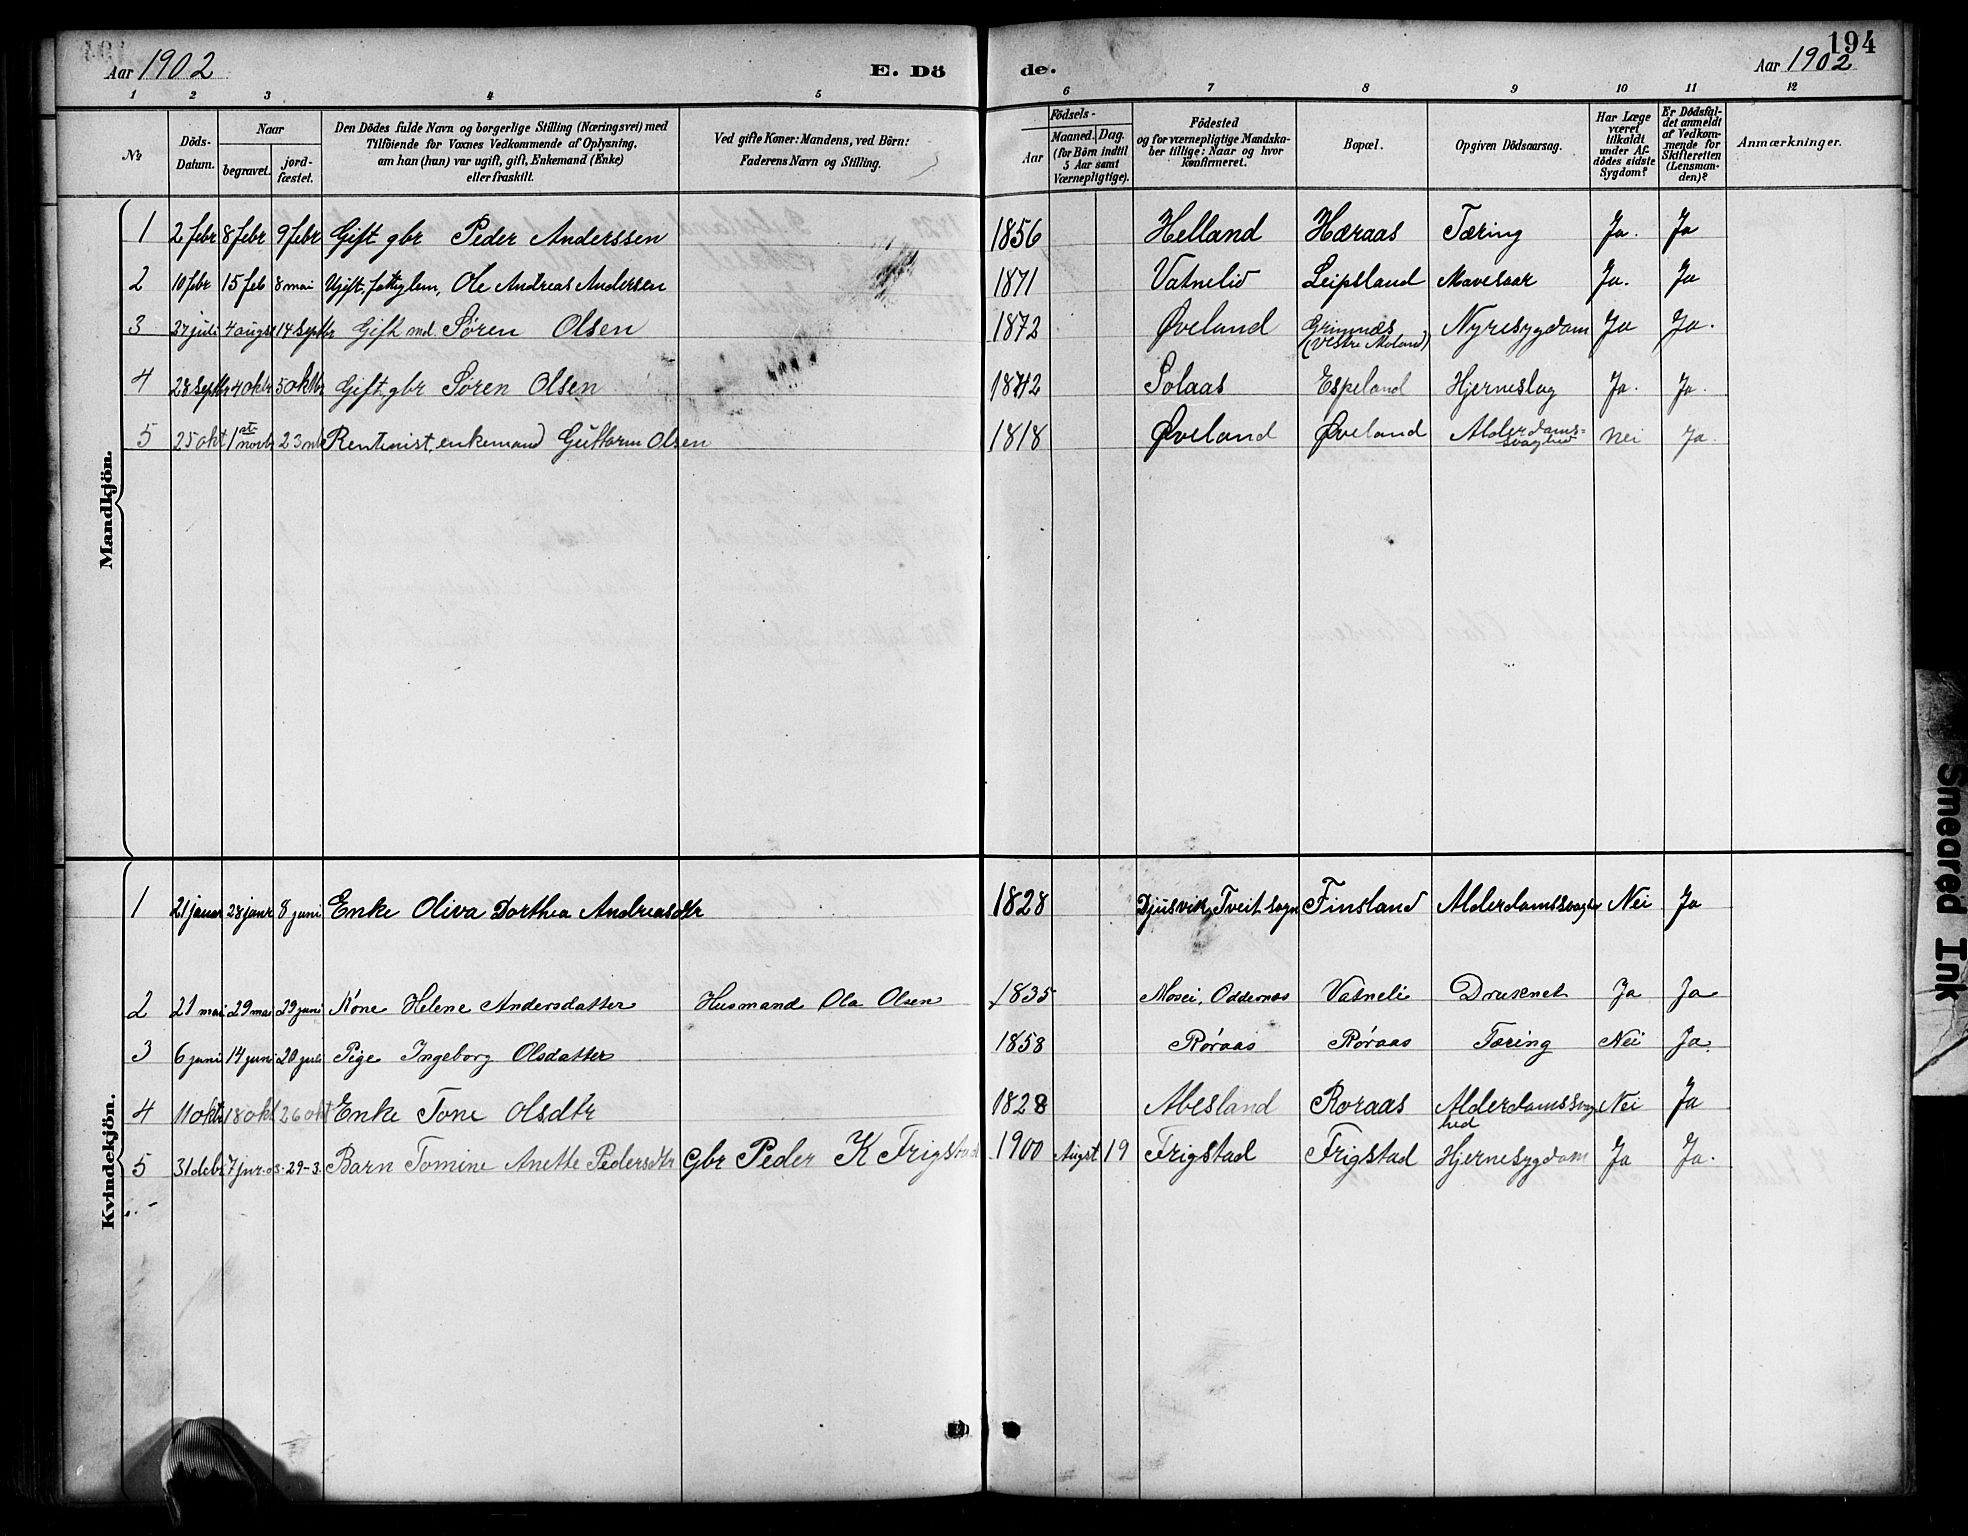 194
Aar 1902 E. Dö de. Aar 1902
1 2 3 4 5 6 7 8 9 10 11 12
No
Döds-Datum.
Naar
begravet.
jord-fæstet.
Den Dödes fulde Navn og borgerlige Stilling (Næringsvei) med
Tilföiende for Voxnes Vedkommende af Oplysning,
om han (hun) var ugift, gift, Enkemand (Enke)
eller fraskilt.
Ved gifte Koner: Mandens, ved Börn:
Faderens Navn og Stilling.
Födsels-
Aar
Maaned. Dag.
(for Börn indtil
5 Aar samt
Værnepligtige).
Födested
og for værnepligtige Mandska-
ber tillige: Naar og hvor
konfirmeret.
Bopæl.
Opgiven Dödsaarsag.
Har Læge
været
tilkaldt
under Af-
dödes sidste
Sygdom?
Er Dödsfal-
det anmeldt
af Vedkom-
mende for
Skifteretten
(Lensman-
den)?
Anmærkninger.
Mandkjön.
1 2 febr 8 febr 9 febr Gift gbr Peder Anderssen 1856 Helland Hæraas Tæring Ja. Ja
2 10 febr 15 feb 8 mai Ugift, fattiglem, Ole Andreas Andersen 1871 Vatnelid Leipsland Mavesaar Ja. Ja
3 27 juli 4 augst 14 septbr Gift md Søren Olsen 1872 Øveland Grimnæs (vestre Moland) Nyresygdom Ja Ja.
4 28 septbr 4 oktr 5 oktbr Gift, gbr Søren Olsen 1842 Solaas Espeland Hjerneslag Ja. Ja.
5 25 okt 1ste novbr 23 Rentenist, enkemand Guttorm Olsen 1818 Øveland Øveland Alderdoms-svaghed Nei Ja.
Kvindekjön.
1 21 januar 28 janr 8 juni Enke Oliva Dorthea Andreasdtr 1828 Djusvik, Tveit sogn Finsland Alderdomssvagh Nei Ja
2 21 mai 29 mai 29 juni Kone Helene Andersdatter Husmand Ola Olsen 1835 Mosei, Oddernes Vatneli Druknet Ja Ja
3 6 juni 14 juni 20 juli Pige Ingeborg Olsdatter 1858 Røraas Røraas Tæring Nei Ja.
4 11 oktr 18 okt 26 okt Enke Tone Olsdtr 1828 Abesland Røraas Alderdomssvaghed Nei Ja
5 31 debr 7 jnr. 03. 29-3. Barn Tomine Anette Pedersdtr Gbr Peder K Frigstad 1900 Augst 19 Frigstad Frigstad Hjernesygdom Ja Ja.
Smeared Ink